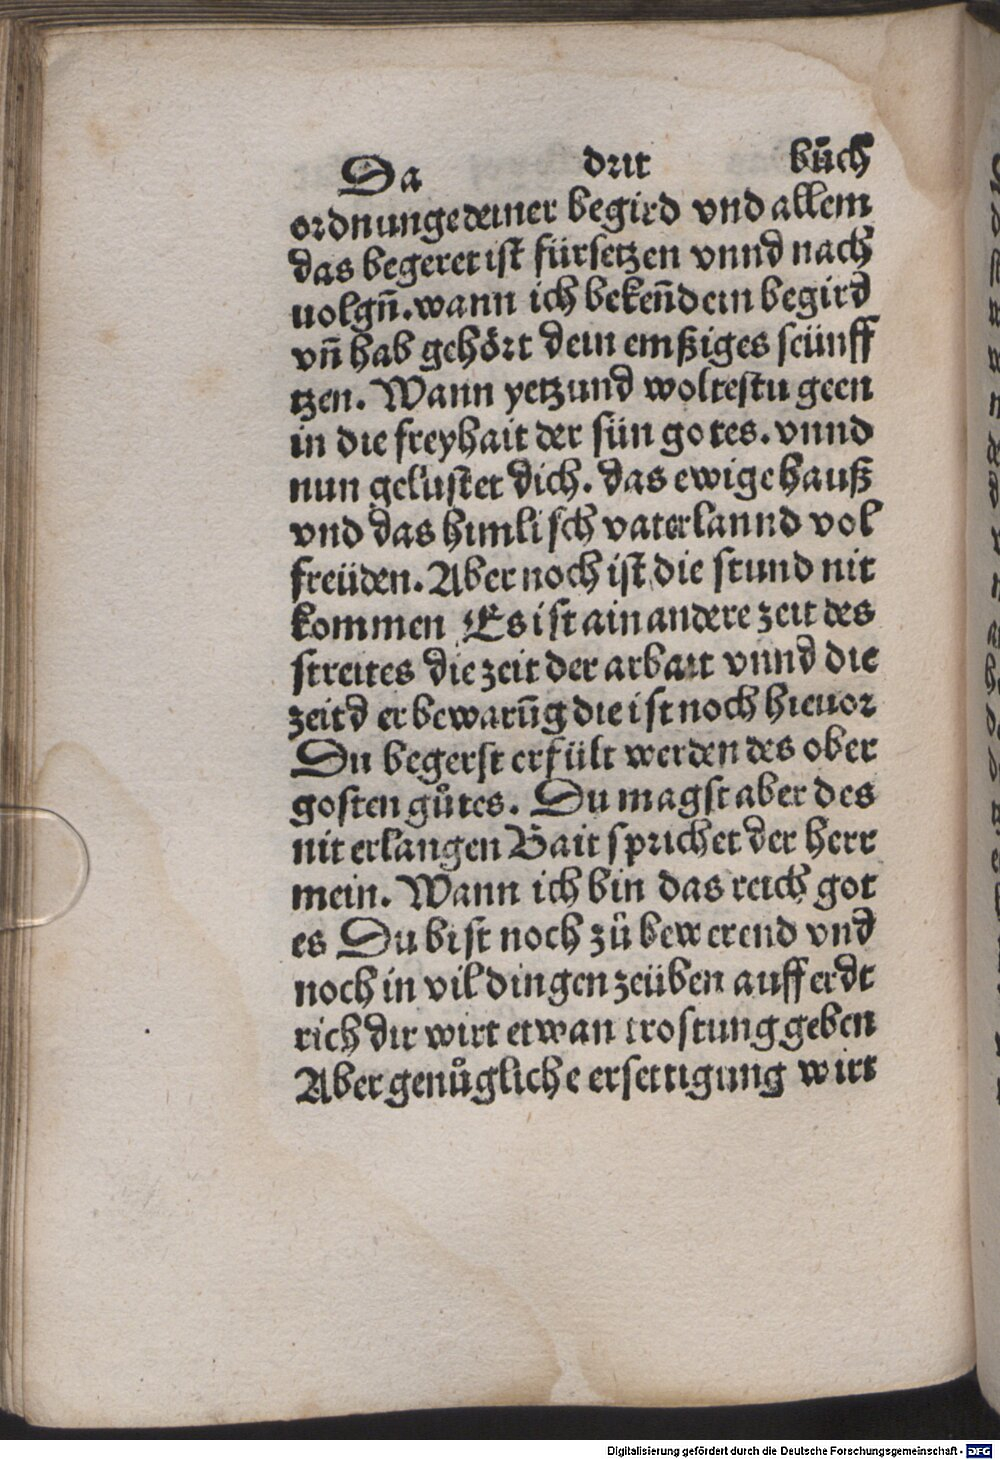 Da drit bůch
ordnunge deiner begird vnd allem
das begeret ist fürsetzen vnnd nach
uolgn̄. wann ich beken̄ dein begird
vn̄ hab gehört dein emßiges seünff
tzen. Wann yetzund woltestu geen
in die freyhait der sün gotes. vnnd
nun gelustet dich. das ewige hauß
vnd das himlisch vaterlannd vol
freüden. Aber noch ist die stund nit
kommen Es ist ain andere zeit des
streites die zeit der arbait vnnd die
zeit der bewarūg die ist noch hieuor
Du begerst erfült werden des ober
gosten gůtes. Du magst aber des
nit erlangen Bait sprichet der herr
mein. Wann ich bin das reich got
es Du bist noch zů bewerend vnd
noch in vil dingen zeüben auff erdt
rich dir wirt etwan trostung geben
Aber genůgliche ersettigung wirt
Digitalisierung gefördert durch die Deutsche Forschungsgemeinschaft - DFG